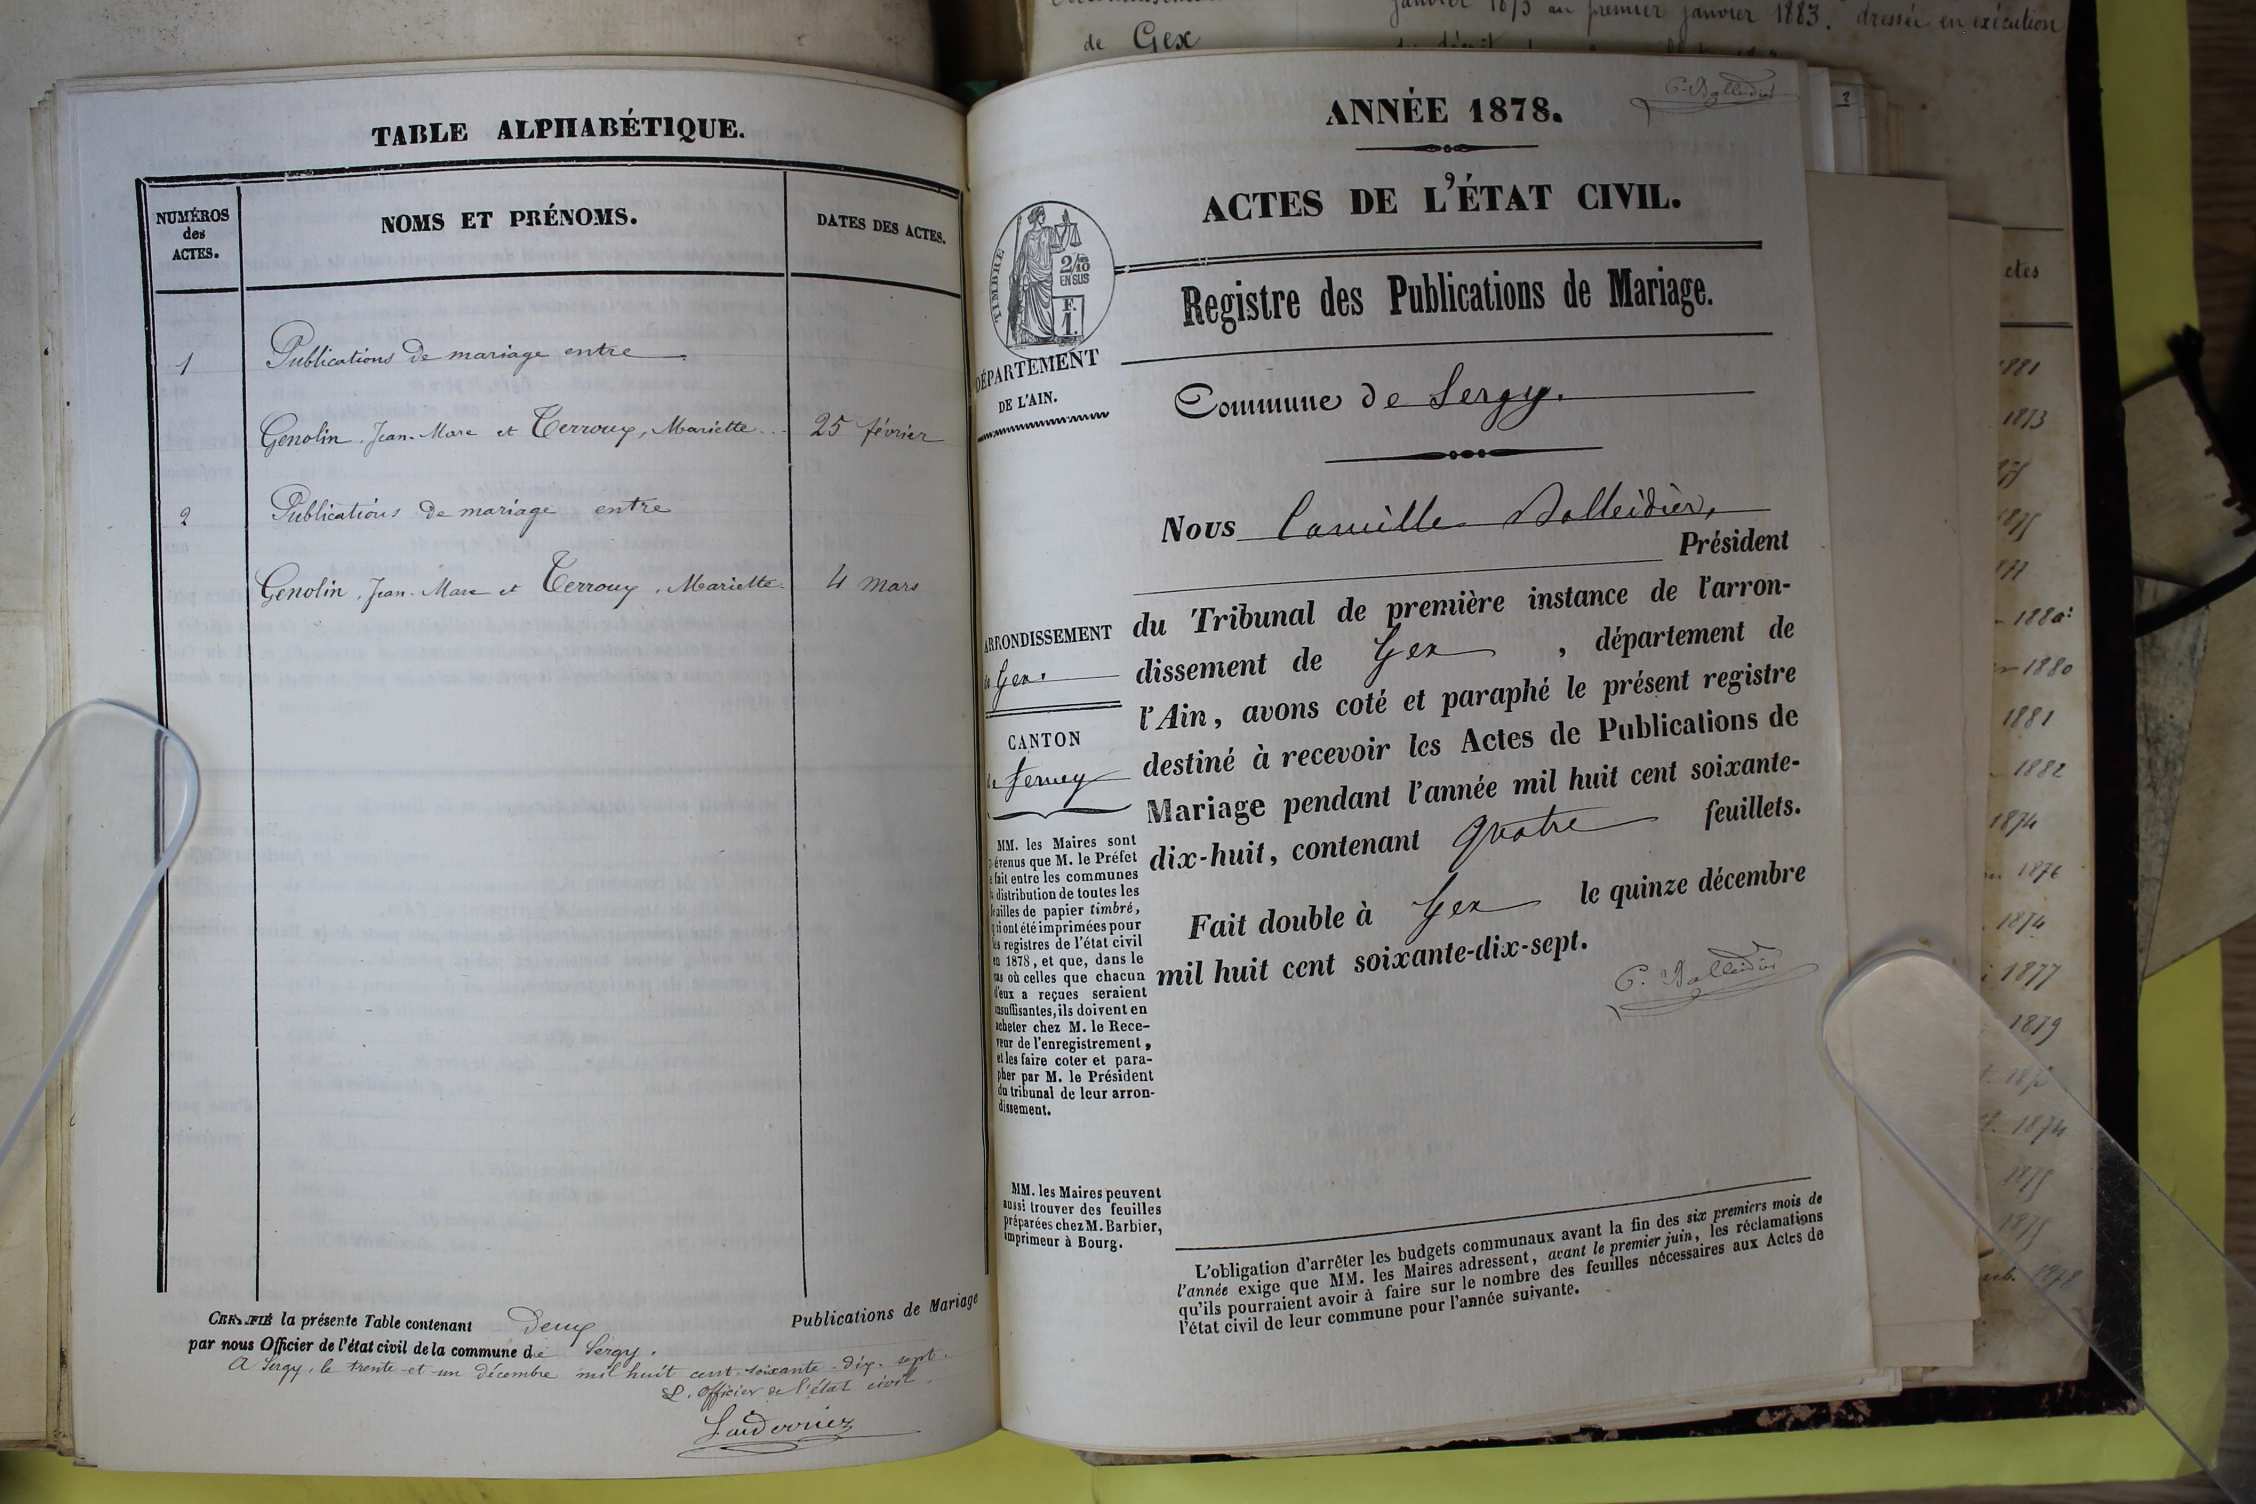 de Gex
janvier 1873 au premier janvier 1883. dressée en exécution
TABLE ALPHABÉTIQUE.
NUMÉROS
des
ACTES.
NOMS ET PRÉNOMS.
DATES DES ACTES.
1
Publications de mariage entre
Genolin, Jean-Marc et Terroux, Mariette
25 février
2
Publications de mariage entre
Genolin, Jean-Marc et Terroux, Mariette
4 mars
CERTIFIÉ la présente Table contenant deux Publications de Mariage
par nous Officier de l'état civil de la commune de Sergy.
A Sergy, le trente-et-un décembre mil huit cent soixante-dix-sept.
L'officier de l'état civil.
ANNÉE 1878.
ACTES DE L'ÉTAT CIVIL.
Registre des Publications de Mariage.
TIMBRE
2/10
EN SUS
F.
1.
DÉPARTEMENT
DE L'AIN.
Commune de Sergy.
ARRONDISSEMENT
de Gex.
CANTON
de Ferney
MM. les Maires sont
prévenus que M. le Préfet
a fait entre les communes
la distribution de toutes les
feuilles de papier timbré,
qui ont été imprimées pour
les registres de l'état civil
en 1878, et que, dans le
cas où celles que chacun
d'eux a reçues seraient
insuffisantes, ils doivent en
acheter chez M. le Rece-
veur de l'enregistrement,
et les faire coter et para-
pher par M. le Président
du tribunal de leur arron-
dissement.
MM. les Maires peuvent
aussi trouver des feuilles
préparées chez M. Barbier,
imprimeur à Bourg.
Nous Camille Balleidier,
Président
du Tribunal de première instance de l'arron-
dissement de Gex, département de
l'Ain, avons coté et paraphé le présent registre
destiné à recevoir les Actes de Publications de
Mariage pendant l'année mil huit cent soixante-
dix-huit, contenant quatre feuillets.
Fait double à Gex le quinze décembre
mil huit cent soixante-dix-sept.
C. Balleidier
L'obligation d'arrêter les budgets communaux avant la fin des six premiers mois de
l'année exige que MM. les Maires adressent, avant le premier juin, les réclamations
qu'ils pourraient avoir à faire sur le nombre des feuilles nécessaires aux Actes de
l'état civil de leur commune pour l'année suivante.
1881
1873
1880
1880
1881
1882
1874
1876
1874
1877
1879
1874
1875
1875
1878